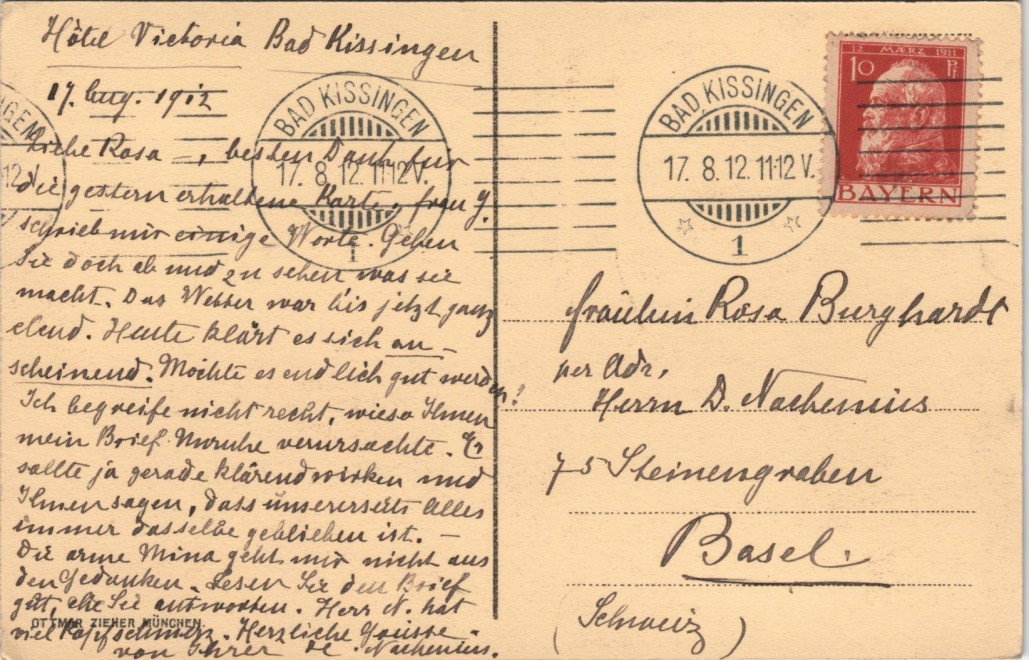 Hôtel Victoria Bad Kissingen
17. Aug. 1912
Liebe Rosa –, besten Dank für
die gestern erhaltene Karte. Frau J.
schrieb mir einige Worte. Gehen
Sie doch ab und zu sehen was sie
macht. Das Wetter war bis jetzt ganz
elend. Heute klärt es sich an-
scheinend. Möchte es endlich gut werden!
Ich begreife nicht recht, wieso Ihnen
mein Brief Unruhe verursachte. Er
sollte ja gerade klärend wirken und
Ihnen sagen, dass unsererseits Alles
immer dasselbe geblieben ist. –
Die arme Mina geht mir nicht aus
den Gedanken. Lesen Sie den Brief
gut, ehe Sie antworten. Herr N. hat
viel Kopfschmerz. Herzliche Grüsse
von Ihrer Nachenius.
OTTMAR ZIEHER MÜNCHEN.
NGEN
BAD KISSINGEN
17. 8. 12. 11-12 V.
1
BAD KISSINGEN
17. 8. 12. 11-12 V.
1
12 MÆRZ 1911
10 Pf
BAYERN
Fräulein Rosa Burghardt
per Adr.
Herrn D. Nachenius
75 Steinengraben
Basel.
(Schweiz)